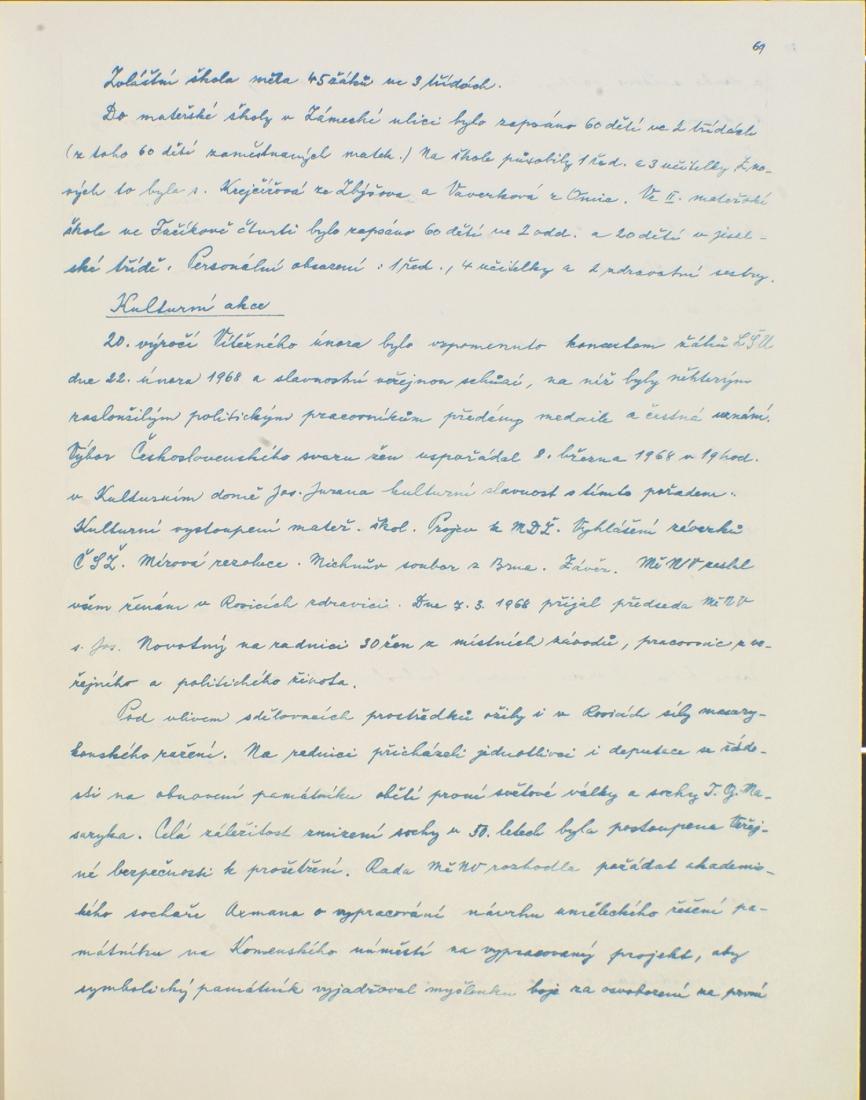 69
Zvláštní škola měla 45 žáků ve 3 třídách.
Do mateřské školy v Zámecké ulici bylo zapsáno 60 dětí ve 2 třídách
(z toho 60 dětí zaměstnaných matek.) Na škole působily 1 řed. a 3 učitelky. Z no-
vých to byla s. Krejčířová ze Zbýšova a Vaverková z Omic. Ve II. mateřské
škole ve Fučíkově čtvrti bylo zapsáno 60 dětí ve 2 odd. a 20 dětí v jesel-
ské třídě. Personální obsazení: 1 řed., 4 učitelky a 2 zdravotní sestry.
Kulturní akce
20. výročí Vítězného února bylo vzpomenuto koncertem žáků LŠU
dne 22. února 1968 a slavnostní veřejnou schůzí, na níž byly některým
zasloužilým politickým pracovníkům předány medaile a čestná uznání.
Výbor Československého svazu žen uspořádal 8. března 1968 v 19 hod.
v Kulturním domě Jos. Jurana kulturní slavnost s tímto pořadem:
Kulturní vystoupení mateř. škol. Projev k MDŽ. Vyhlášení závazků
ČSŽ. Mírová rezoluce. Michnův soubor z Brna. Závěr. MěNV zaslal
všem ženám v Rosicích zdravici. Dne 7. 3. 1968 přijal předseda MěNV
s. Jos. Novotný na radnici 30 žen z místních závodů, pracovnic z ve-
řejného a politického života.
Pod vlivem sdělovacích prostředků ožily i v Rosicích síly masary-
kovského ražení. Na radnici přicházeli jednotlivci i deputace se žádo-
sti na obnovení památníku obětí první světové války a sochy T. G. Ma-
saryka. Celá záležitost zmizení sochy v 50. letech byla postoupena Veřej-
né bezpečnosti k prošetření. Rada MěNV rozhodla požádat akademic-
kého sochaře Axmana o vypracování návrhu uměleckého řešení pa-
mátníku na Komenského náměstí na vypracovaný projekt, aby
symbolický památník vyjadřoval myšlenku boje za osvobození na první